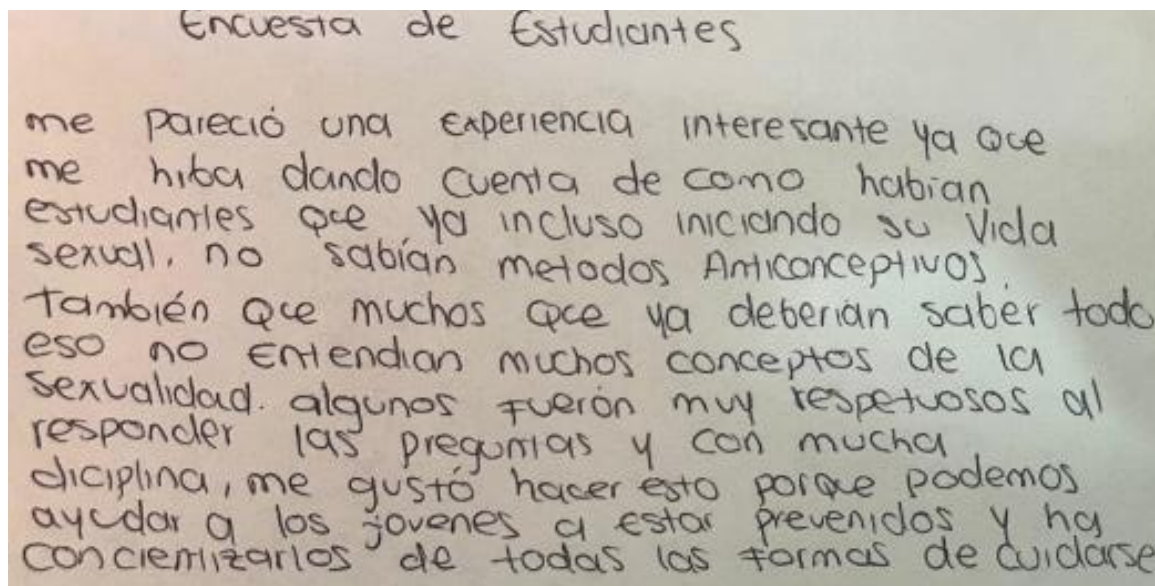 Encuesta de Estudiantes
me pareció una experiencia interesante ya que
me hiba dando cuenta de como habian
estudiantes que ya incluso iniciando su vida
sexual. no sabían metodos Anticonceptivos.
También que muchos que ya deberian saber todo
eso no entendian muchos conceptos de la
sexualidad. algunos fuerón muy respetuosos al
responder las preguntas y con mucha
diciplina, me gustó hacer esto porque podemos
ayudar a los jovenes a estar prevenidos y ha
concientizarlos de todas las formas de cuidarse